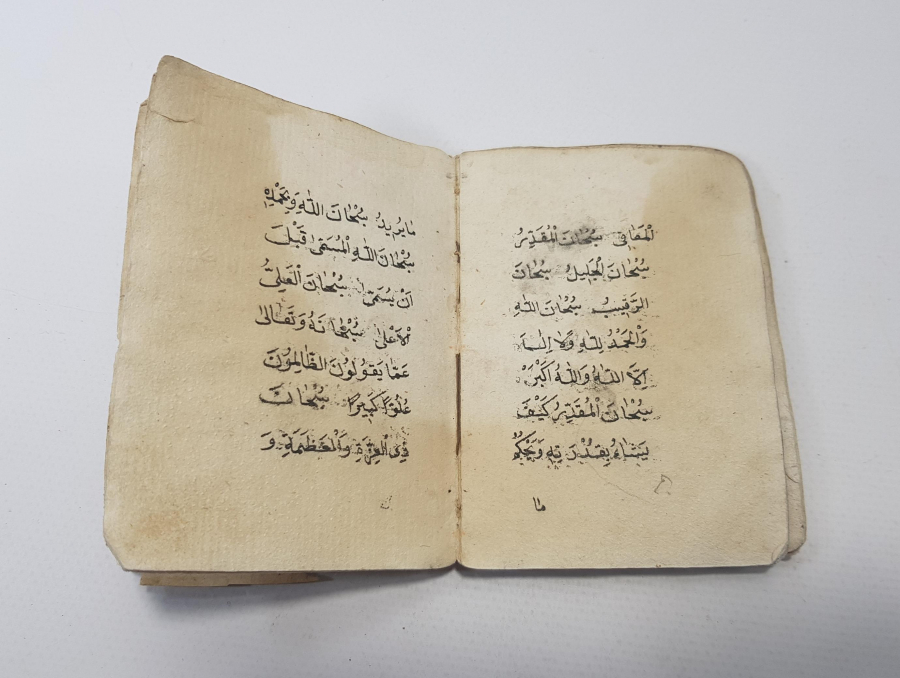 الْمَعَافِى سُبْحَانَ الْمُقَدِّرُ
سُبْحَانَ الْجَلِيلُ سُبْحَانَ
الرَّقِيبُ سُبْحَانَ اللّٰهِ
وَالْحَمْدُ لِلّٰهِ وَلَا اِلٰهَ
اِلَّا اللّٰهُ وَاللّٰهُ اَكْبَرُ
سُبْحَانَ الْمُقَدِّرُ كَيْفَ
يَشَاءُ بِقُدْرَتِهِ وَيَحْكُمُ
مَا
مَا يُرِيدُ سُبْحَانَ اللّٰهِ وَبِحَمْدِهِ
سُبْحَانَ اللّٰهِ الْمُسَمّٰى قَبْلَ
اَنْ يُسَمّٰى سُبْحَانَ الْعَلِىُّ
الْاَعْلٰى سُبْحَانَهُ وَتَعَالٰى
عَمَّا يَقُولُونَ الظَّالِمُونَ
عُلُوًّا كَبِيرًا سُبْحَانَ
ذِى الْعِزَّةِ وَالْعَظَمَةِ وَ